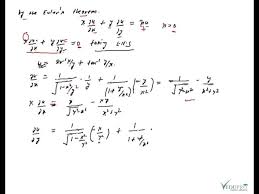 by the Euler's theorem.
x ∂u/∂x + y ∂u/∂y = nu n=0
x ∂u/∂x + y ∂u/∂y = 0 taking L.H.S
u = sin⁻¹ x/y + tan⁻¹ y/x.
∂u/∂x = 1/√(1-x²/y²) · 1/y + 1/(1+y²/x²) (-y/x²) = 1/√(y²-x²) - y/(x²+y²)
x ∂u/∂x = x/√(y²-x²) - xy/(x²+y²)
∂u/∂y = 1/√(1-x²/y²) (-x/y²) + 1/(1+y²/x²)
VEDUPRO